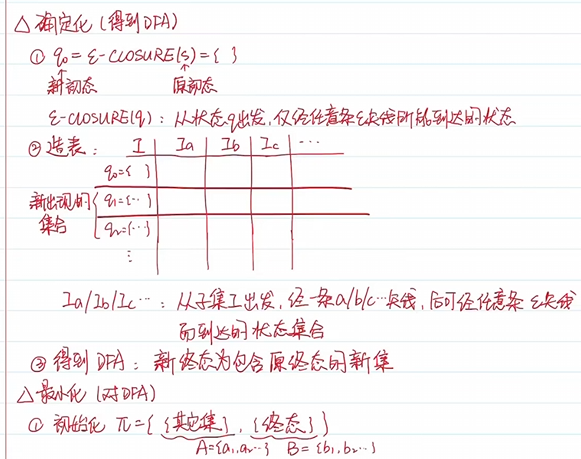 △ 确定化 (得到DFA)
① q₀ = ε-CLOSURE(s) = { }
新初态 原初态
ε-CLOSURE(q): 从状态q出发,仅经任意条ε矢线所能到达的状态
② 造表: I Ia Ib Ic ...
q₀={ }
新出现的集合 { q₁={...}
q₂={...}
⋮
Ia/Ib/Ic...: 从子集I出发,经一条a/b/c...矢线,后可经任意条ε矢线
而到达的状态集合
③ 得到DFA: 新终态为包含原终态的新集
△ 最小化 (对DFA)
① 初始化 π={ {其它集}, {终态} }
A={a₁,a₂...} B={b₁,b₂...}